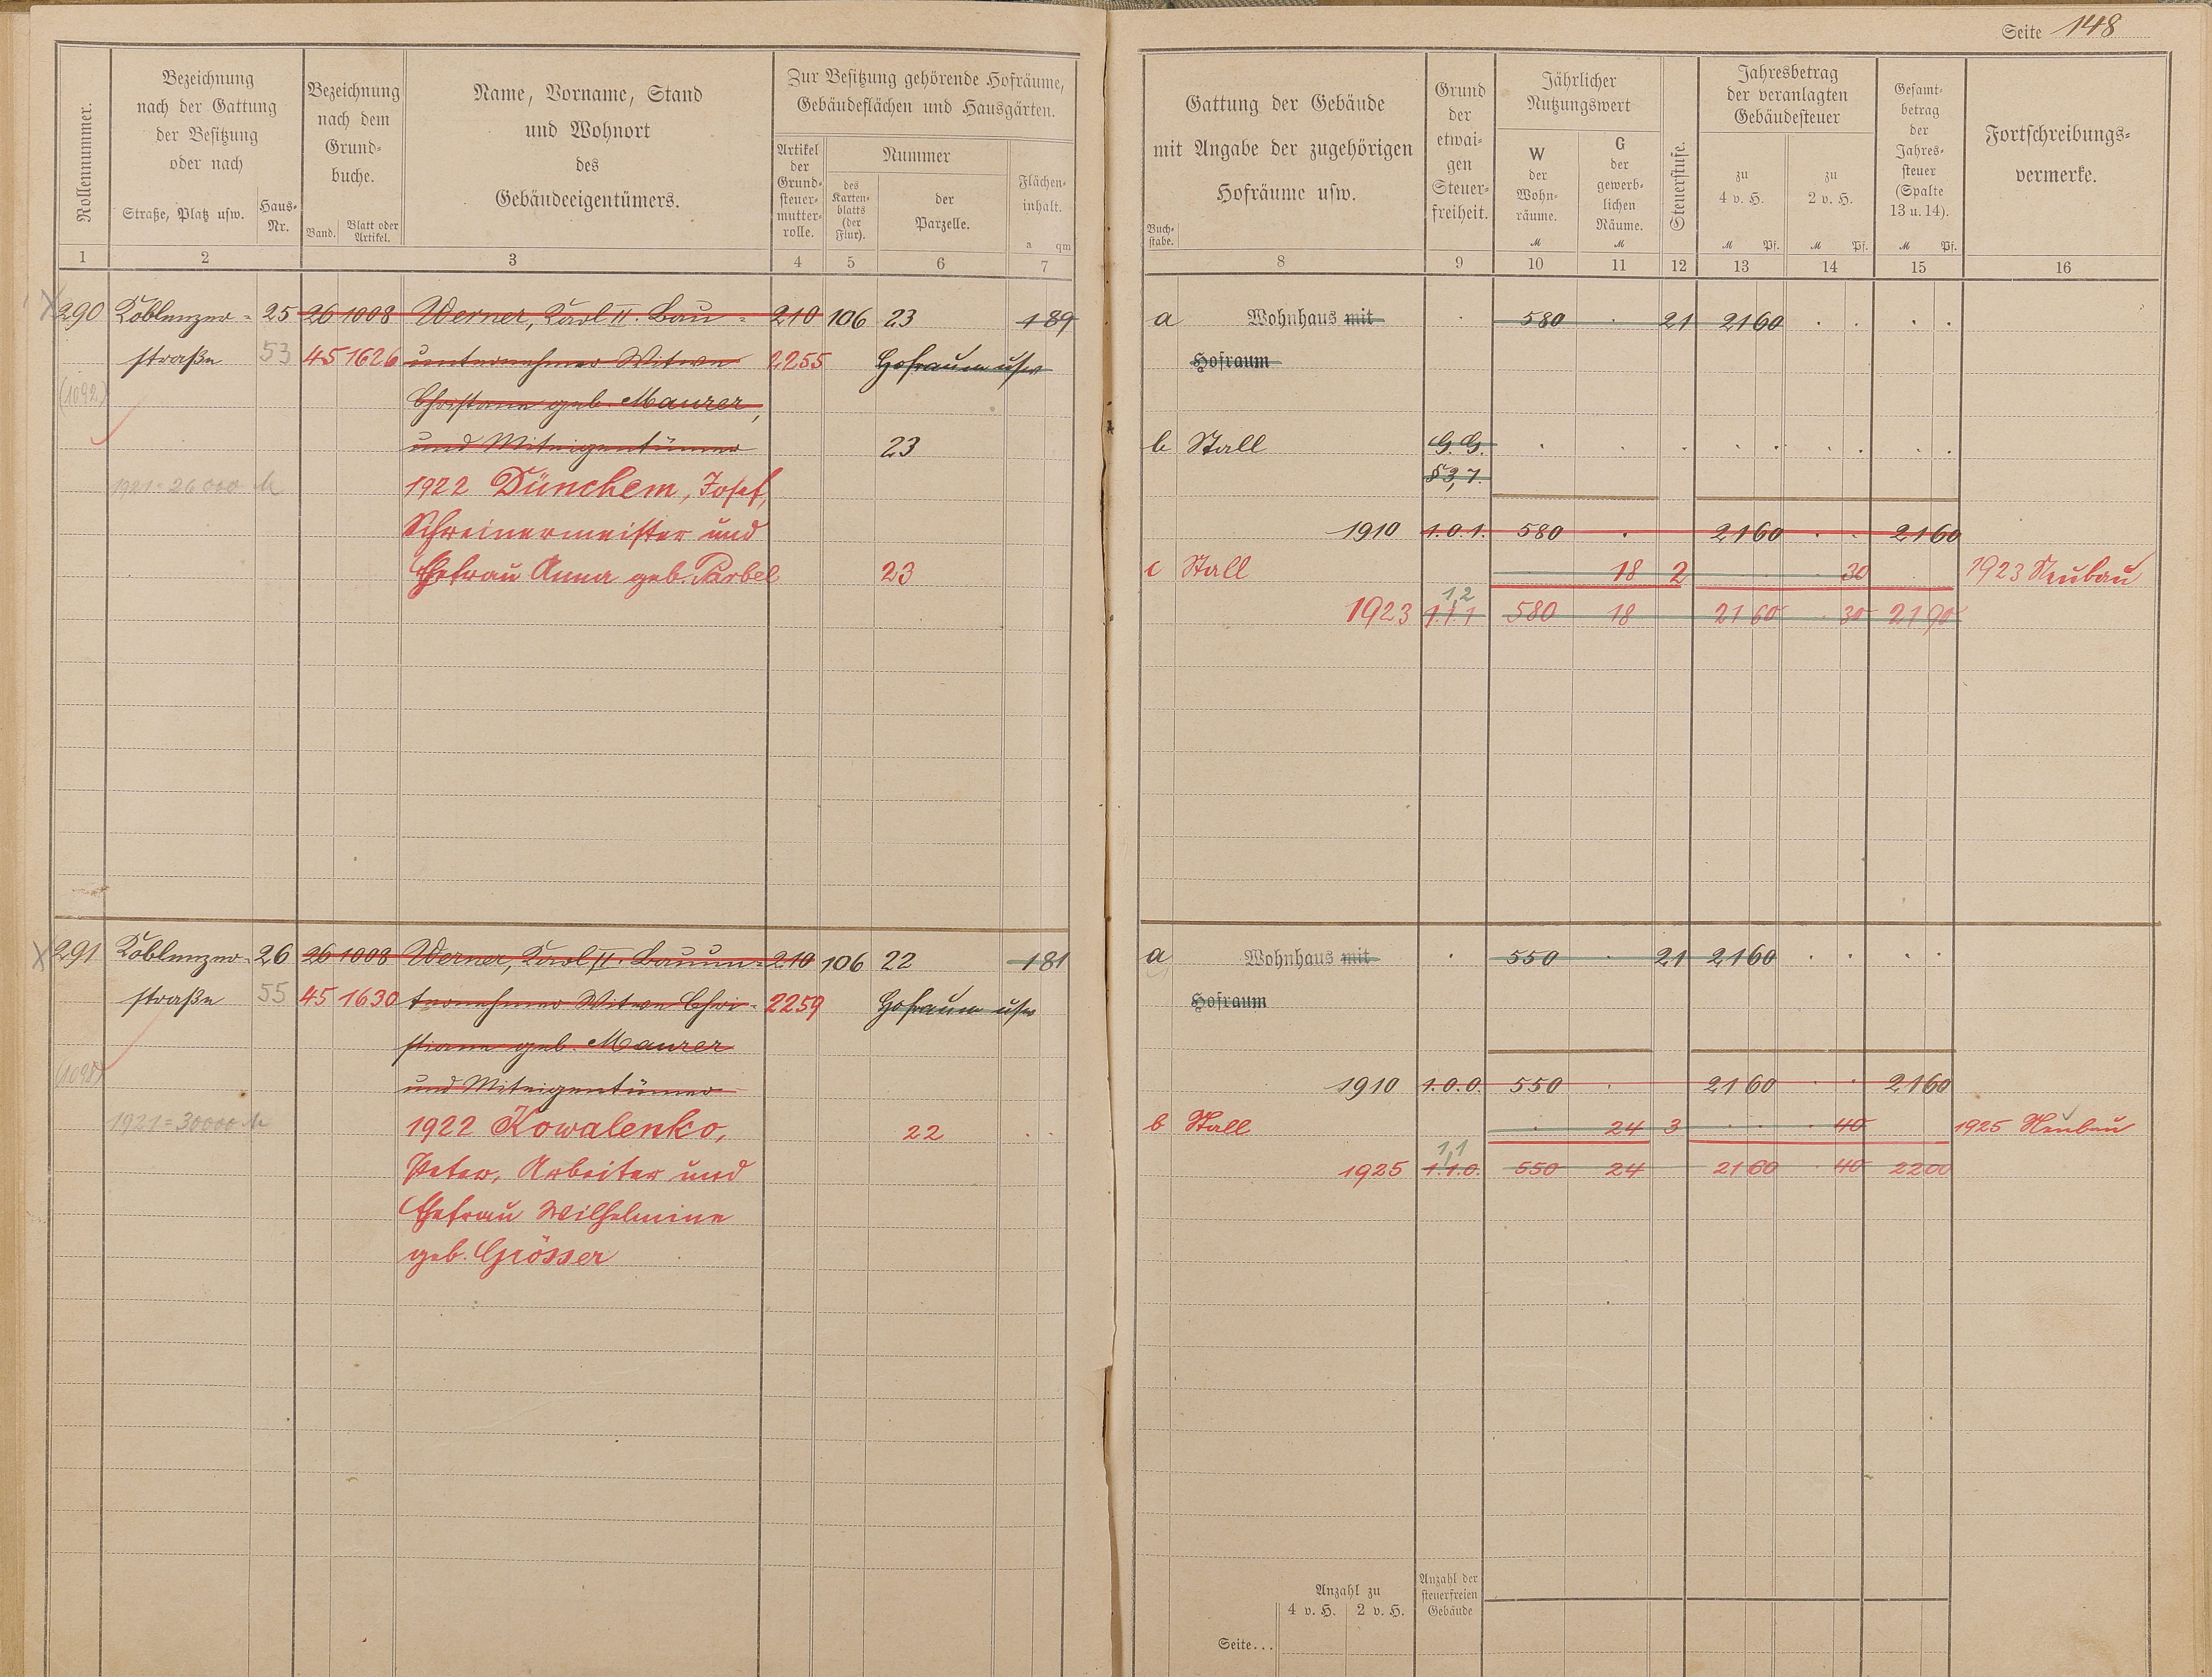 Seite 148
Rollennummer.
Bezeichnung
nach der Gattung
der Besitzung
oder nach
Straße, Platz usw.
Haus-
Nr.
Bezeichnung
nach dem
Grund-
buche.
Band.
Blatt oder
Artikel.
Name, Vorname, Stand
und Wohnort
des
Gebäudeeigentümers.
Zur Besitzung gehörende Hofräume,
Gebäudeflächen und Hausgärten.
Artikel
der
Grund-
steuer-
mutter-
rolle.
Nummer
des
Karten-
blatts
(der
Flur).
der
Parzelle.
Flächen-
inhalt.
a qm
1 2 3 4 5 6 7
290 Koblenzer- 25 26 1008 Werner, Karl II. Bau- 210 106 23 1 89
straße 53 45 1626 unternehmer Witwe 2255 Hofraum usw
(1092) Christiane geb. Maurer,
und Miteigentümer 23
1921=26000 M 1922 Dünchem, Josef,
Schreinermeister und
Ehefrau Anna geb. Parbel 23
291 Koblenzer- 26 26 1008 Werner, Karl II. Bauun- 210 106 22 1 81
straße 55 45 1630 ternehmer Witwe Chri- 2259 Hofraum usw
stiane geb. Maurer
(1098) und Miteigentümer
1921=30000 M 1922 Kowalenko, 22
Peter, Arbeiter und
Ehefrau Wilhelmine
geb. Grösser
Gattung der Gebäude
mit Angabe der zugehörigen
Hofräume usw.
Buch-
stabe.
Grund
der
etwai-
gen
Steuer-
freiheit.
Jährlicher
Nutzungswert
W
der
Wohn-
räume.
M
G
der
gewerb-
lichen
Räume.
M
Steuerstufe.
Jahresbetrag
der veranlagten
Gebäudesteuer
zu
4 v. H.
M Pf.
zu
2 v. H.
M Pf.
Gesamt-
betrag
der
Jahres-
steuer
(Spalte
13 u. 14).
M Pf.
Fortschreibungs-
vermerke.
8 9 10 11 12 13 14 15 16
a Wohnhaus mit 580 21 21 60
Hofraum
b Stall G. G.
§ 3,7.
1910 1.0.1. 580 21 60 21 60
c Stall 18 2 30 1923 Neubau
1,2
1923 1.1.1 580 18 21 60 30 21 90
a Wohnhaus mit 550 21 21 60
Hofraum
1910 1.0.0. 550 21 60 21 60
b Stall 24 3 40 1925 Neubau
1,1
1925 1.1.0. 550 24 21 60 40 22 00
Anzahl zu
4 v. H. 2 v. H.
Anzahl der
steuerfreien
Gebäude
Seite...